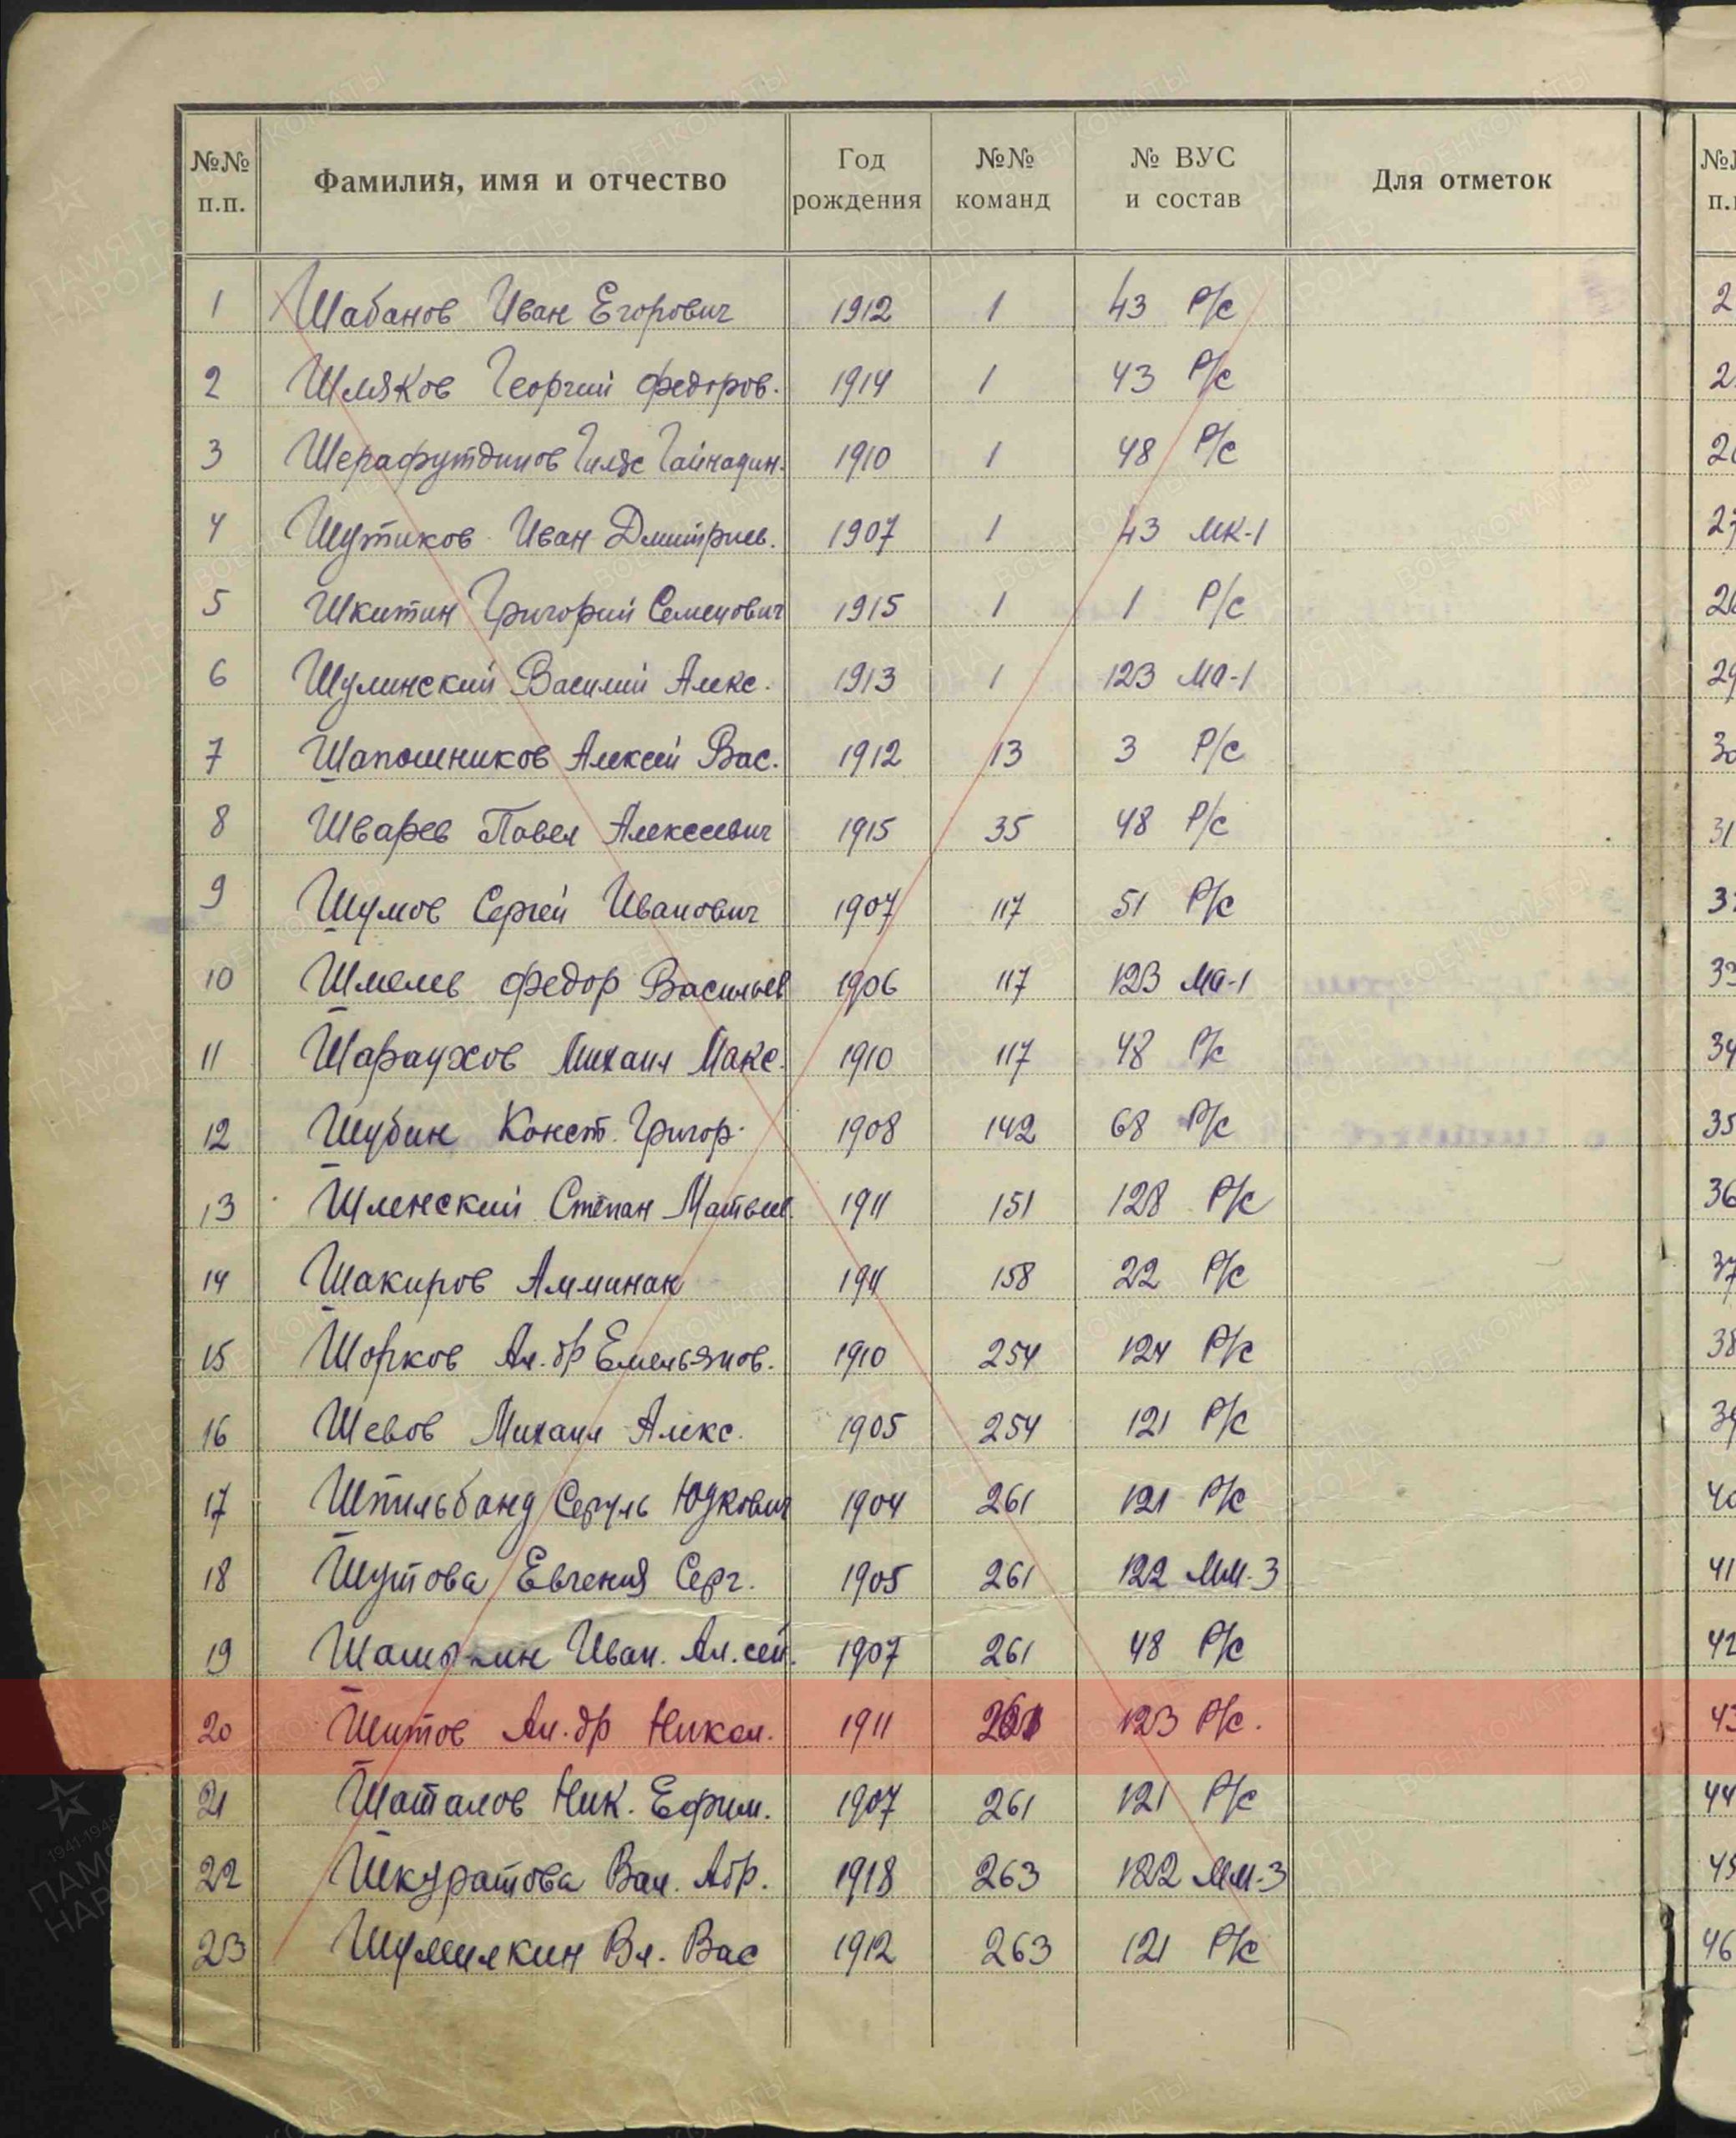 №№ п.п. Фамилия, имя и отчество Год рождения №№ команд № ВУС и состав Для отметок
1 Шабанов Иван Егорович 1912 1 43 Р/с
2 Шляков Георгий Федоров. 1914 1 43 Р/с
3 Шерафутдинов Гиляс Гайнадин. 1910 1 48 Р/с
4 Шутиков Иван Дмитриев. 1907 1 43 МК-1
5 Шкитин Григорий Семенович 1915 1 1 Р/с
6 Шулинский Василий Алекс. 1913 1 123 Ма-1
7 Шапошников Алексей Вас. 1912 13 3 Р/с
8 Шварев Павел Алексеевич 1915 35 48 Р/с
9 Шумов Сергей Иванович 1907 117 51 Р/с
10 Шмелев Федор Васильев 1906 117 123 Ма-1
11 Шараухов Михаил Макс. 1910 117 48 Р/с
12 Шубин Конст. Григор. 1908 142 68 Р/с
13 Шленский Степан Матвеев. 1911 151 128 Р/с
14 Шакиров Амминак 1911 158 22 Р/с
15 Шорков Ал.др Емельянов. 1910 254 124 Р/с
16 Шевов Михаил Алекс. 1905 254 121 Р/с
17 Шпильбанд Юдкович 1904 261 121 Р/с
18 Шутова Евгения Серг. 1905 261 122 ММ-3
19 Иван. Ал.сей. 1907 261 48 Р/с
20 Шитов Ал.др Никол. 1911 261 123 Р/с.
21 Шаталов Ник. Ефим. 1907 261 121 Р/с
22 Шкуратова Вал. Абр. 1918 263 122 ММ-3
23 Шумилкин Вл. Вас 1912 263 121 Р/с
ПАМЯТЬ НАРОДА
ВОЕНКОМАТЫ
1941-1945